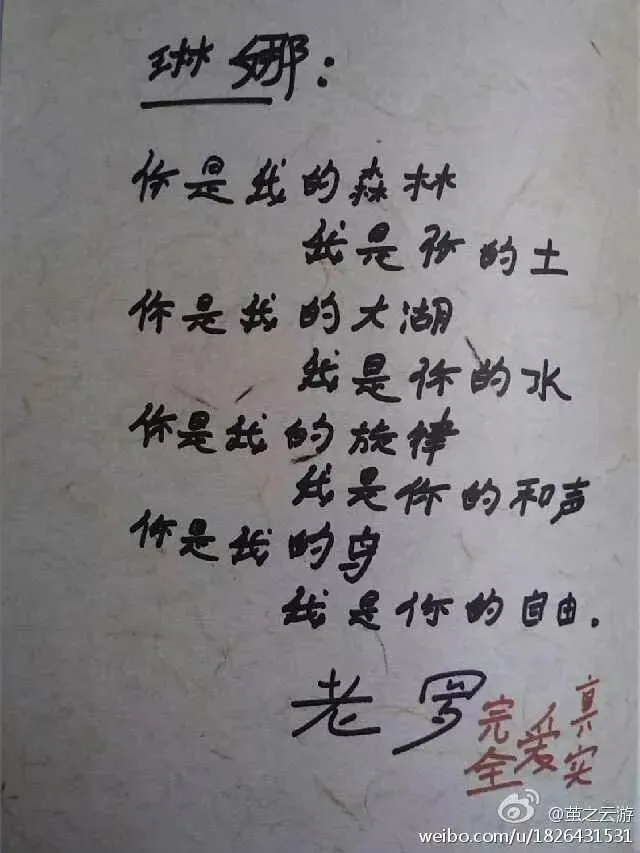 琳娜：
你是我的森林
我是你的土
你是我的大湖
我是你的水
你是我的旋律
我是你的和声
你是我的鸟
我是你的自由.
老罗
完全爱真实
@茧之云游
weibo.com/u/1826431531